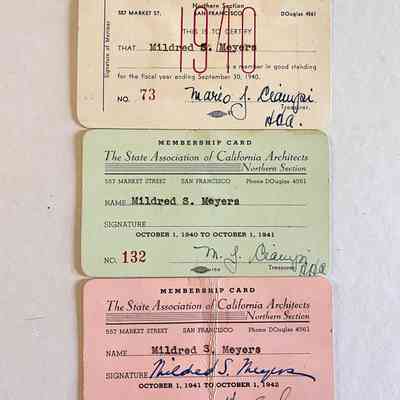 Northern Section
557 MARKET ST. SAN FRANCISCO DOuglas 4561
1940
THIS IS TO CERTIFY
THAT Mildred S. Meyers
is a member in good standing
for the fiscal year ending September 30, 1940.
Signature of Member
NO. 73 Mario J. Ciampi
Treasurer.
MEMBERSHIP CARD
The State Association of California Architects
Northern Section
557 MARKET STREET SAN FRANCISCO Phone DOuglas 4561
NAME Mildred S. Meyers
SIGNATURE
OCTOBER 1, 1940 TO OCTOBER 1, 1941
NO. 132 M. J. Ciampi
Treasurer
MEMBERSHIP CARD
The State Association of California Architects
Northern Section
557 MARKET STREET SAN FRANCISCO Phone DOuglas 4561
NAME Mildred S. Meyers
SIGNATURE Mildred S. Meyers
OCTOBER 1, 1941 TO OCTOBER 1, 1942